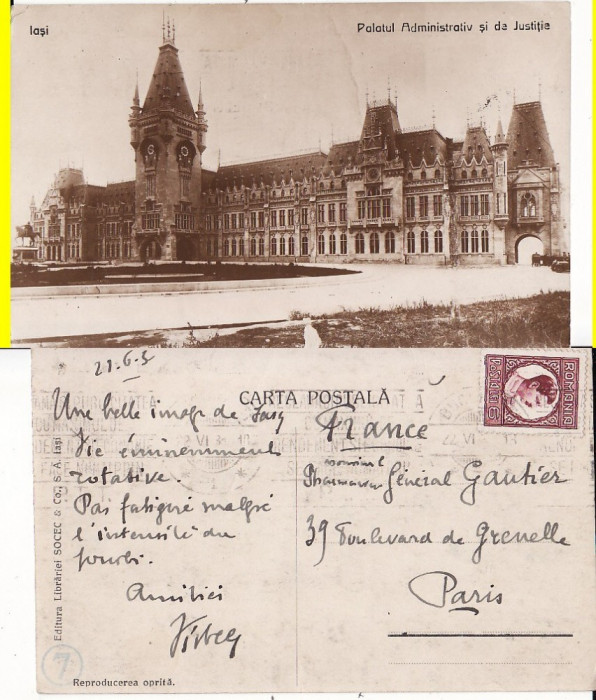 Iași
Palatul Administrativ și de Justiție
CARTA POSTALĂ
Une belle image de Iasy
Vie éminemment
rotative.
Pas fatigué malgré
l'intensité du
Amitiés
France
Pharmacien Général Gautier
39 Boulevard de Grenelle
Paris
ROMANIA
POSTA
Editura Librăriei SOCEC & Co., S. A. Iași
7
Reproducerea oprită.